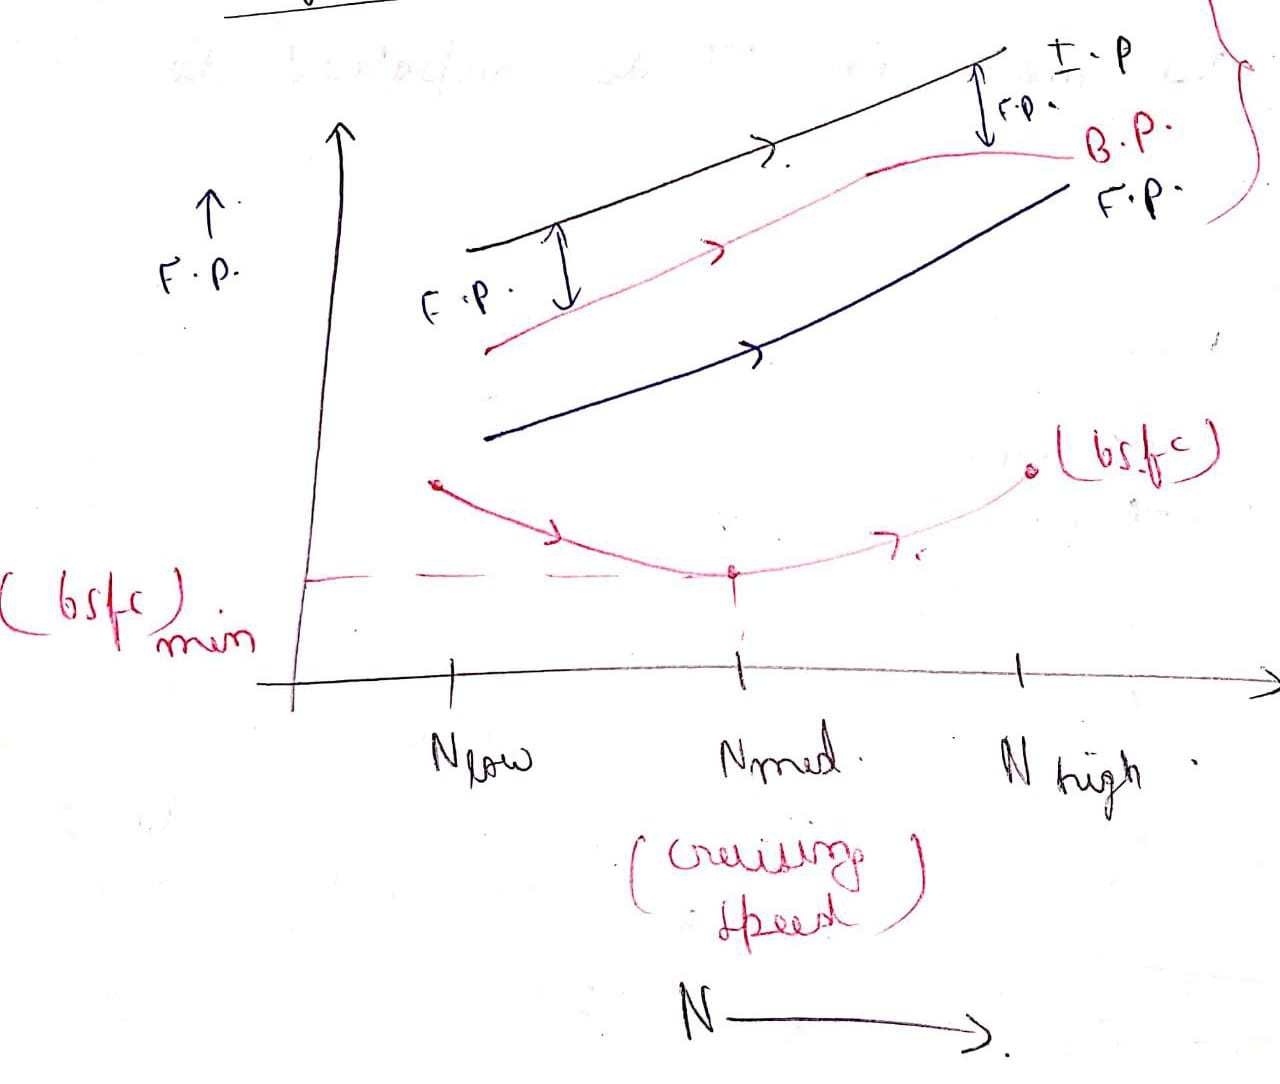 I.P
F.P.
B.P.
F.P.
F.P.
F.P.
(bsfc)
(bsfc)min
Nlow
Nmed.
N high.
(cruising
speed)
N